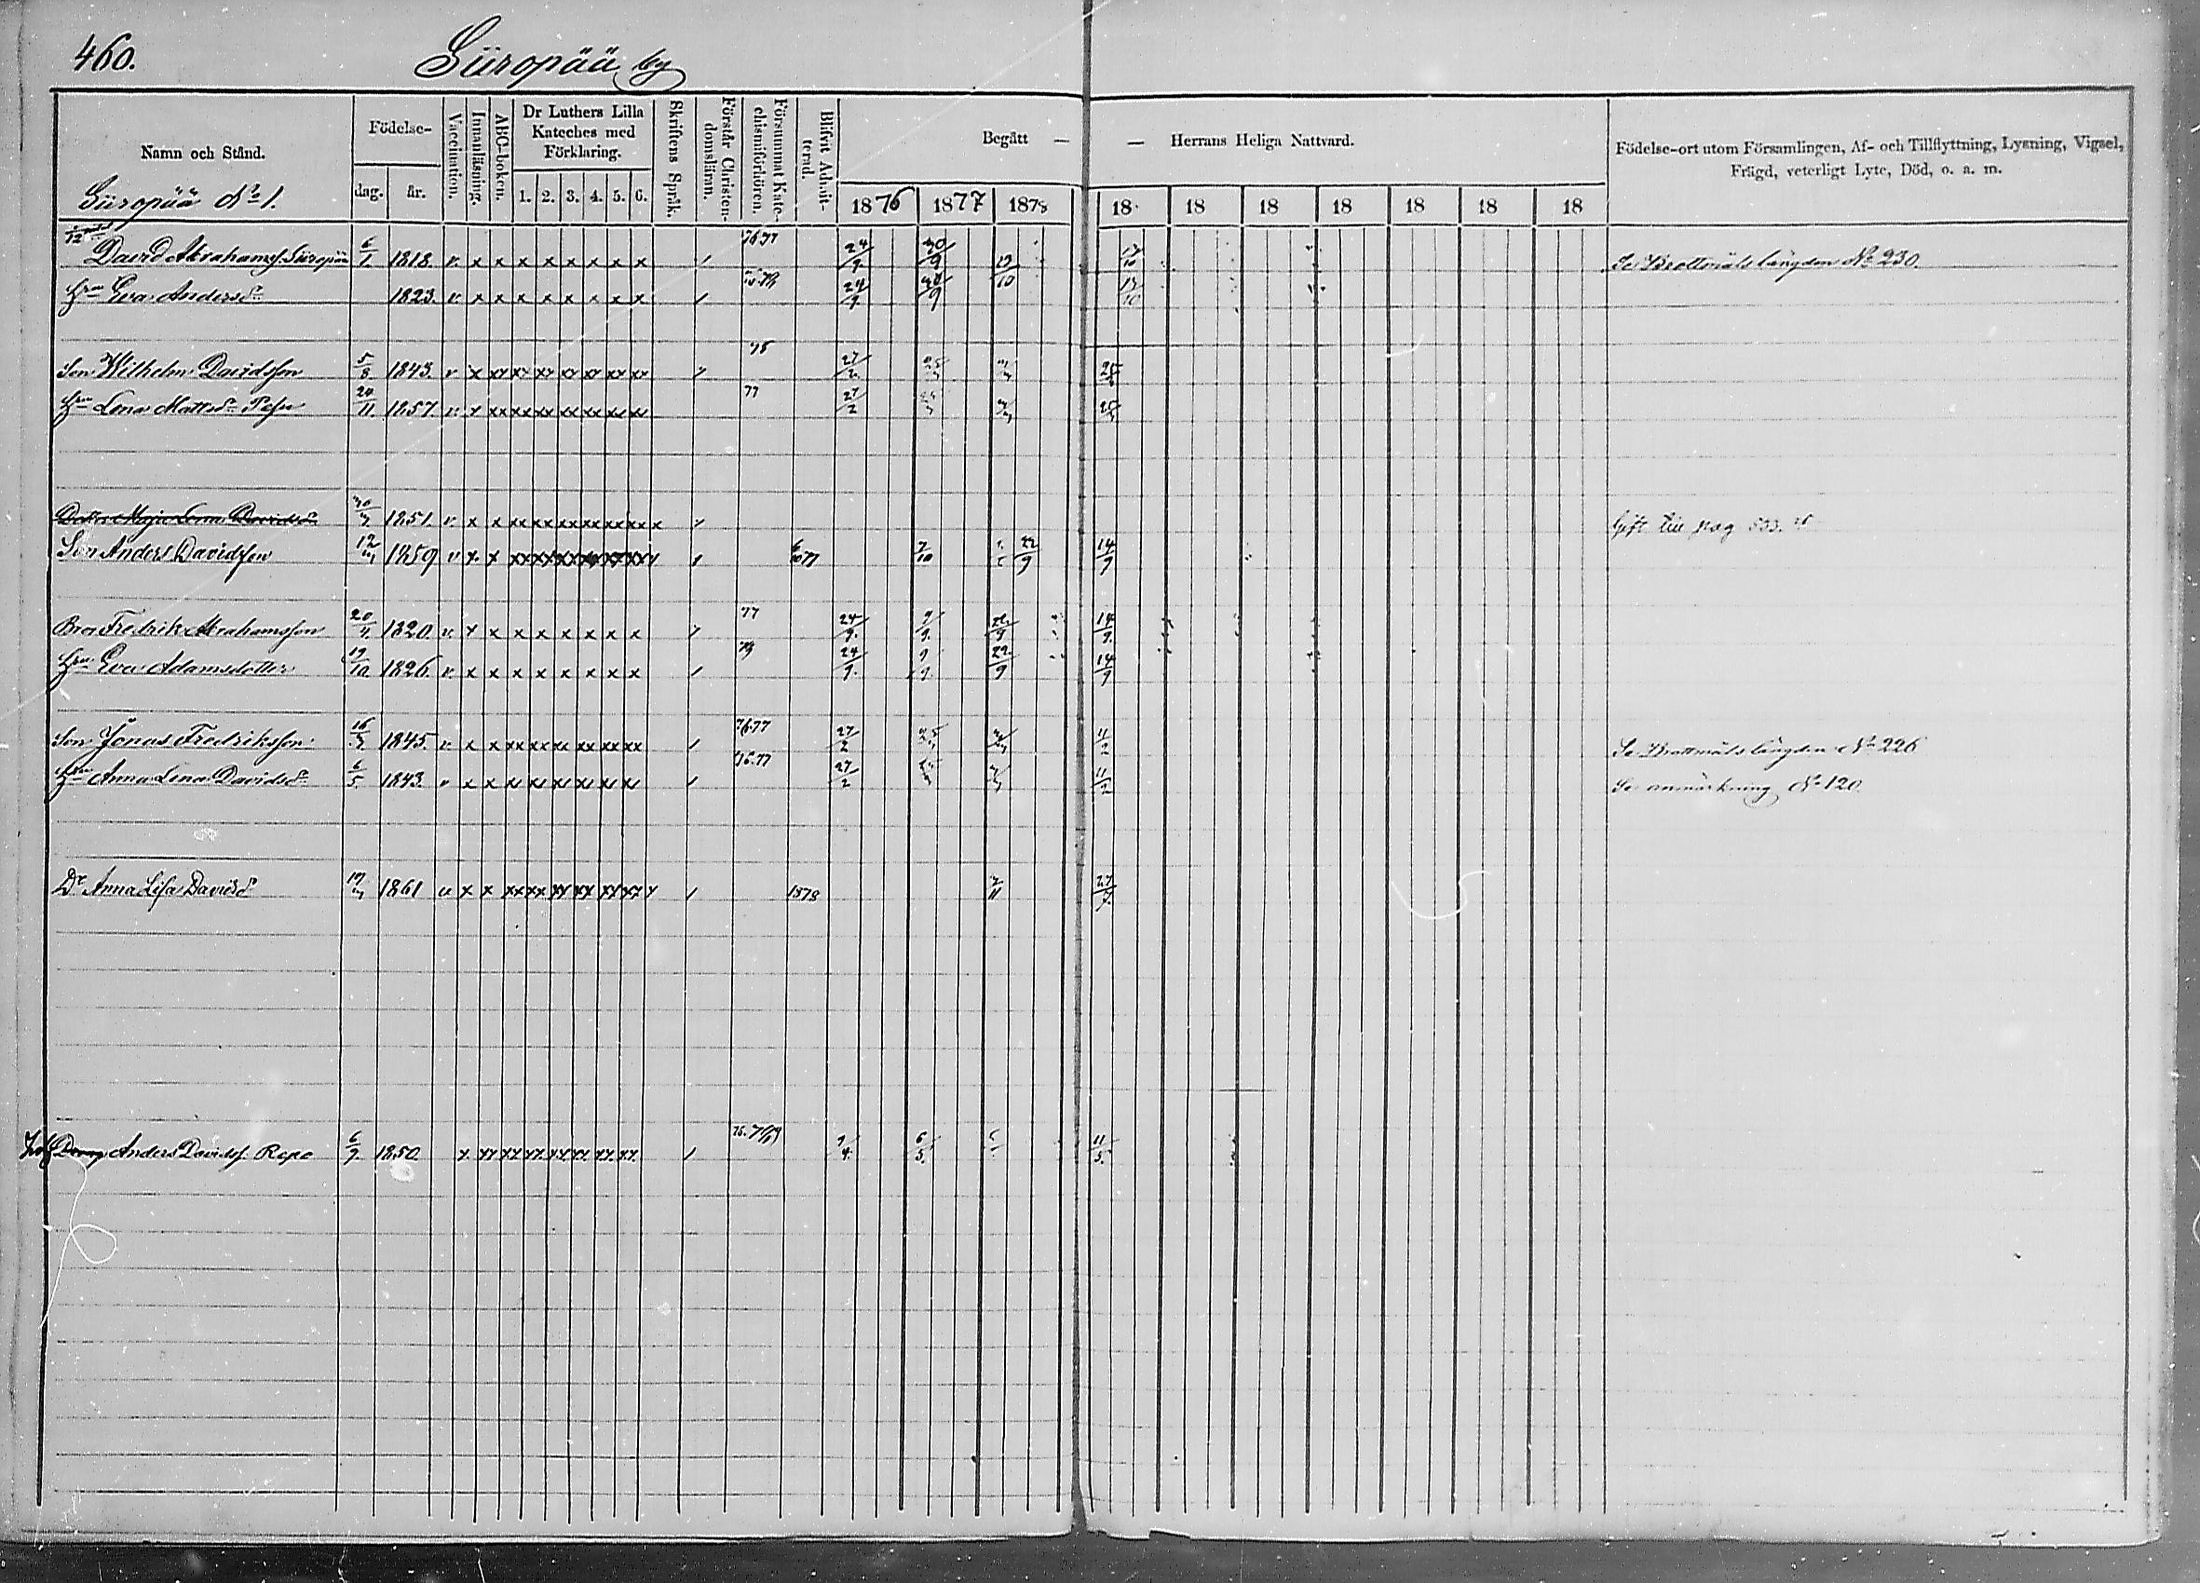 460.
Siiropää by
Namn och Stånd.
Födelse-
dag.
år.
Vaccination.
Innanläsning.
ABC-boken.
Dr Luthers Lilla
Kateches med
Förklaring.
1. 2. 3. 4. 5. 6.
Skriftens Språk.
Förstår Christen-
domsläran.
Försummat Kate-
chismiförhören.
Blifvit Admit-
terad.
Begått — — Herrans Heliga Nattvard.
1876 1877 1878 18 18 18 18 18 18 18
Födelse-ort utom Församlingen, Af- och Tillflyttning, Lysning, Vigsel,
Frägd, veterligt Lyte, Död, o. a. m.
Siiropää No 1.
David Abrahamss. Siiropää 6/1. 1818. v. x x x x x x x x 76.77 24/9. 30/9 13/10 Se Brottmåls längden No 230.
Hru Eva Andersdr 1823. v. x x x x x x x x 24/9. 30/9
Son Wilhelm Davidsson 5/8 1843. v. x xx xx xx xx xx xx xx 27/2.
Hru Lena Mattsdr Pesu 20/11 1857 v. x xx xx xx xx xx xx xx 77 27/2
Maja Lena Davidsdr 1851. v. x x xx xx xx xx xx xx x Gift till pag 533.
Son Anders Davidsson 1859 v x x xx xx xx xx xx xx x 7/10 22/9 14/9
Bror Fredrik Abrahamsson 1820. v. x x x x x x x x 77 24/9. 9/9. 22/9 14/9.
Hru Eva Adamsdotter 19/10 1826. v. x x x x x x x x 24/9. 9/9. 22/9 14/9
Son Jonas Fredriksson 1845. v. x x xx xx xx xx xx xx 76.77 27/2 11/2 Se Brottmåls längden No 226
Hru Anna Lena Davidsdr 6/5. 1843. v x x xx xx xx xx xx xx 76.77 27/2 11/2 Se anmärkning No 120.
Dr Anna Lisa Davidsdr 1861 v x x xx xx xx xx xx xx x 1878
Anders Davidss. Repo 6/9. 1850. x. xx xx xx xx xx xx xx. 9/4. 6/5. 11/5.